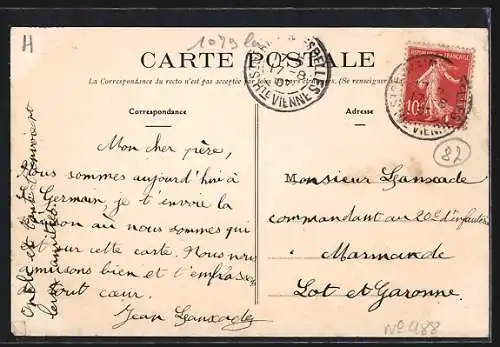 H
1079
CARTE POSTALE
La Correspondance du recto n'est pas acceptée par tous les pays étrangers. (Se renseigner
Correspondance
Adresse
10
82
Mon cher père,
Nous sommes aujourd'hui à
St Germain, je t'envoie la
maison où nous sommes qui
est sur cette carte. Nous nous
amusons bien et t'embrassons
tout cœur.
Jean Lanxade
Monsieur Lanxade
commandant au 20e d'infanterie
Marmande
Lot et Garonne.
No 488